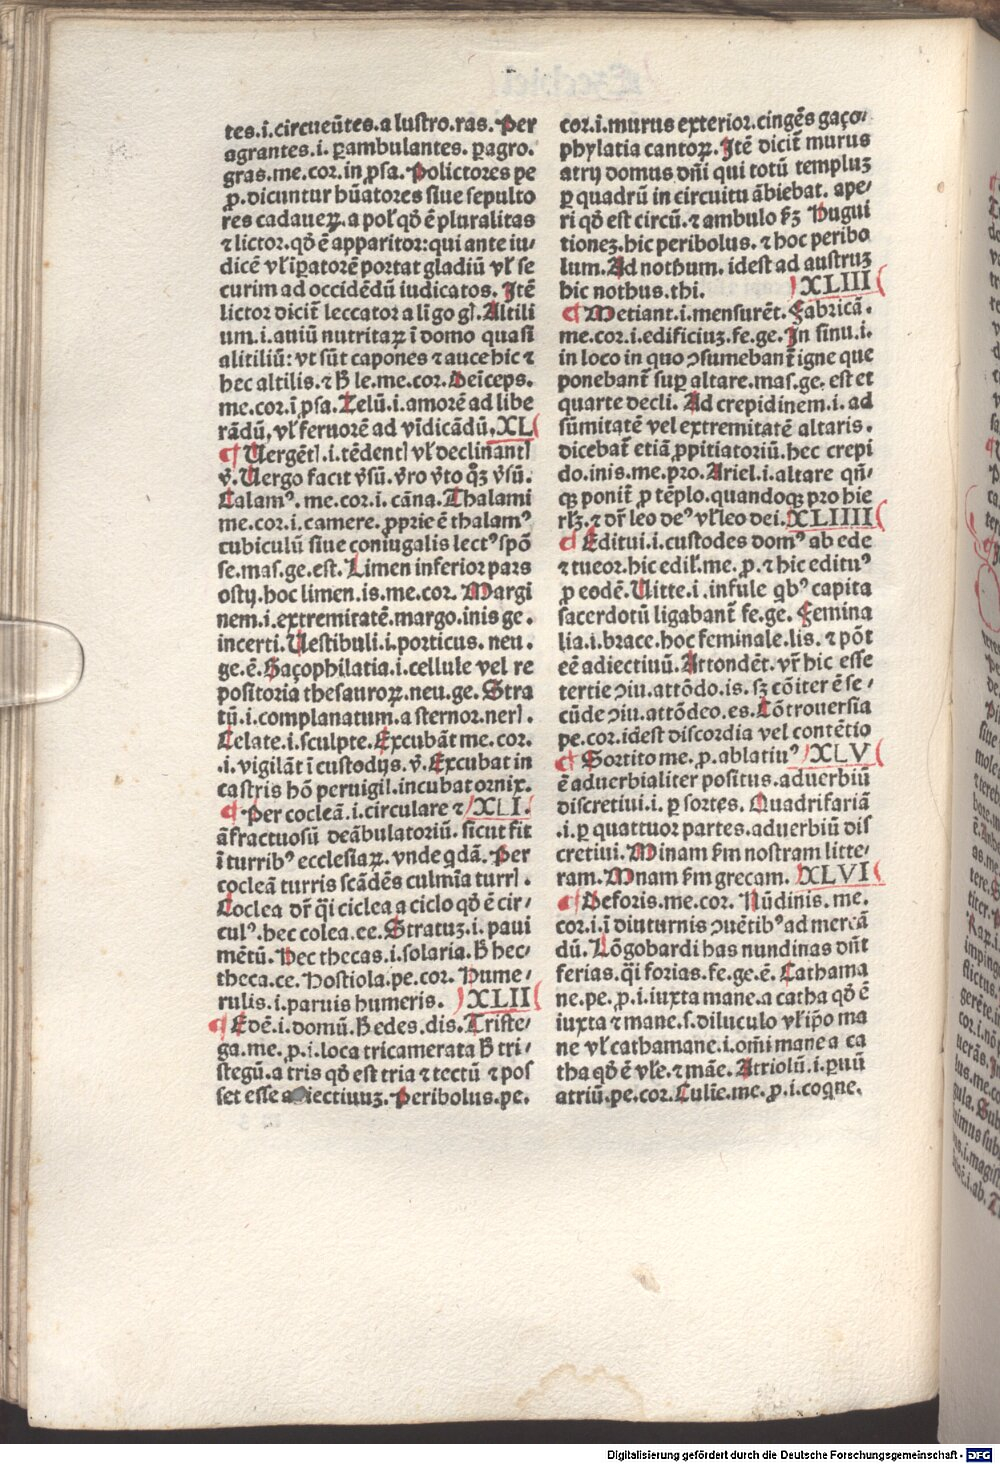 tes.i.circueūtes.a lustro.ras.Per
agrantes.i. ꝑambulantes. ꝑagro.
gras.me.cor.in ꝓsa.Polictores pe
ꝓ.dicuntur hūatores siue sepulto
res cadaueꝝ.a pol' qđ ē pluralitas
⁊ lictor.qđ ē apparitor:qui ante iu⸗
dicē vl' īꝑatorē portat gladiū vl' se
curim ad occidēdū iudicatos. Itē
lictor dicit̄ leccator a ligo gꝭ.Altili
um.i.auiū nutritaꝝ ī domo quasi
alitiliū: vt sūt capones ⁊ auce hic ⁊
hec altilis.⁊ ħ le.me.cor.Deīceps.
me.cor.ī ꝓsa.Zelū.i.amorē ad libe
rādū,vl' feruorē ad vīdicādū.XL
Uergētꝭ.i.tēdentꝭ vl' declinantꝭ
v̄.Uergo facit v̄sū.v̄ro v̄to qꝫ v̄sū.
Calamꝰ.me.cor.i.cāna.Thalami
me.cor.i.camere.ꝓprie ē thalamꝰ
cubiculū siue coniugalis lectꝰ spō
se.mas.ge.est.Limen inferior pars
ostij.hoc limen.is.me.cor. Margi
nem.i.extremitatē.margo.inis ge.
incerti.Uestibuli.i.porticus. neu.
ge.ē.Gaçophilatia.i.cellule vel re
positoria thesauroꝝ.neu.ge.Stra
tū.i.complanatum.a sternor.nerꝭ.
Celate.i.sculpte.Excubāt me.cor.
.i.vigilāt ī custodijs.v̄.Excubat in
castris hō peruigil.incubat ornix.
Per cocleā.i.circulare ⁊ XLI.
āfractuosū deābulatoriū. sicut fit
ī turribꝰ ecclesiaꝝ.vnde qdā.Per
cocleā turris scādēs culmīa turrꝭ.
Coclea dr̄ q̄i ciclea a ciclo qđ ē cir⸗
culꝰ.hec colea.ee.Stratuꝫ.i.paui
mētū.Hec thecas.i.solaria.ħ hec⸗
theca.ce.Hostiola.pe.cor.Hume⸗
rulis.i.paruis humeris. XLII
Edē.i.domū.ħ edes.dis.Triste⸗
ga.me.ꝓ.i.loca tricamerata ħ tri⸗
stegū.a tris qđ est tria ⁊ tectū ⁊ pos
set esse adiectiuuꝫ.Peribolus.pe.
cor.i.murus exterior.cingēs gaço⸗
phylatia cantoꝝ.Itē dicit̄ murus
atrij domus dn̄i qui totū templuꝫ
ꝑ quadrū in circuitu ābiebat. ape⸗
ri qđ est circū.⁊ ambulo ẜꝫ Hugui
tioneꝫ.hic peribolus.⁊ hoc peribo
lum.Ad nothum.idest ad austruꝫ
hic nothus.thi. XLIII
Metiant.i.mensurēt.Fabricā.
me.cor.i.edificiuꝫ.fe.ge.In sinu.i.
in loco in quo ↄsumebant̄ igne que
ponebant̄ suꝑ altare.mas.ge.est et
quarte decli. Ad crepidinem.i. ad
sūmitatē vel extremitatē altaris.
dicebat̄ etiā ꝓpitiatoriū.hec crepi
do.inis.me.pro.Ariel.i.altare qn̄⸗
qꝫ ponit̄ ꝓ tēplo.quandoqꝫ pro hie
rlꝫ.⁊ dr̄ leo deꝰ vl' leo dei.XLIIII
Editui.i.custodes domꝰ ab ede
⁊ tueor.hic edil'.me.ꝓ.⁊ hic edituꝰ
ꝓ eodē.Uitte.i.infule qbꝰ capita
sacerdotū ligabant̄ fe.ge.Femina
lia.i.brace.hoc feminale.lis.⁊ pōt
eē adiectiuū.Attondēt.vr̄ hic esse
tertie ↄiu.attōdo.is.sꝫ cōiter ē se⸗
cūde ↄiu.attōdeo.es.Cōtrouersia
pe.cor.idest discordia vel contētio
Sortito me.ꝓ.ablatiuꝰ XLV
ē aduerbialiter positus.aduerbiū
discretiui.i.ꝑ sortes. Quadrifariā
.i.ꝑ quattuor partes.aduerbiū dis
cretiui.Minam ẜm nostram litte⸗
ram.Mnam ẜm grecam. XLVI
Deforis.me.cor. Nūdinis.me.
cor.i.ī diuturnis ↄuētibꝰ ad mercā
dū. Lōgobardi has nundinas dn̄t
ferias.q̄i forias.fe.ge.ē. Cathama
ne.pe.ꝓ.i.iuxta mane.a catha qđ ē
iuxta ⁊ mane.s.diluculo vl' ip̄o ma
ne vl' cathamane.i.om̄i mane a ca
tha qđ ē vl'e.⁊ māe. Atriolū.i.ꝑuū
atriū.pe.cor.Culīe.me.ꝓ.i.coqne.
Digitalisierung gefördert durch die Deutsche Forschungsgemeinschaft - DFG